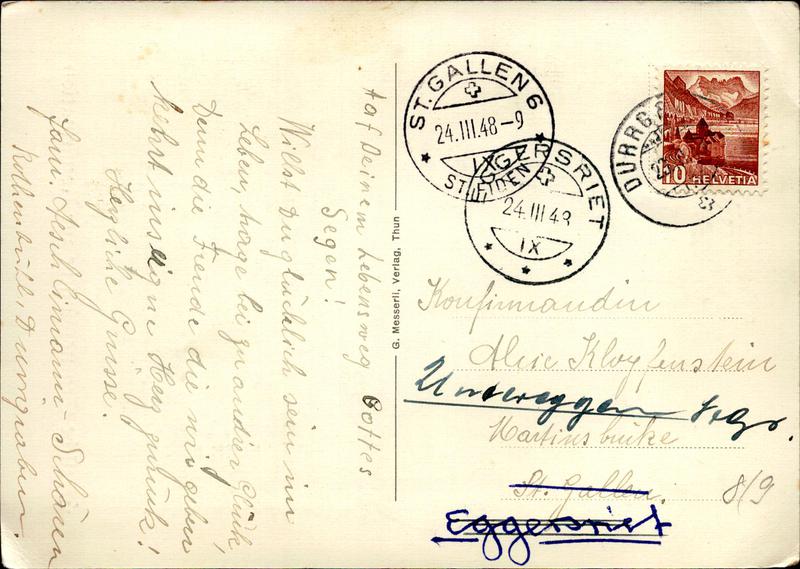 Auf Deinem Lebensweg Gottes
Segen!
Willst Du glücklich sein im
Leben, trage bei zu andrer Glück,
Denn die Freude die wir geben
kehrt ins eigne Herz zurück!
Herzliche Grüsse!
Fam. Aeschlimann-Schönen
Rothenbühl, Dürrgraben.
G. Messerli, Verlag, Thun
ST. GALLEN 6
24.III.48-9
ST. FIDEN
EGGERSRIET
24.III.48
IX
DÜRRG
10 HELVETIA
Konfirmandin
Alice Klopfenstein
Untereggen
Martinsbrücke
St. Gallen. 8/9
Eggersriet